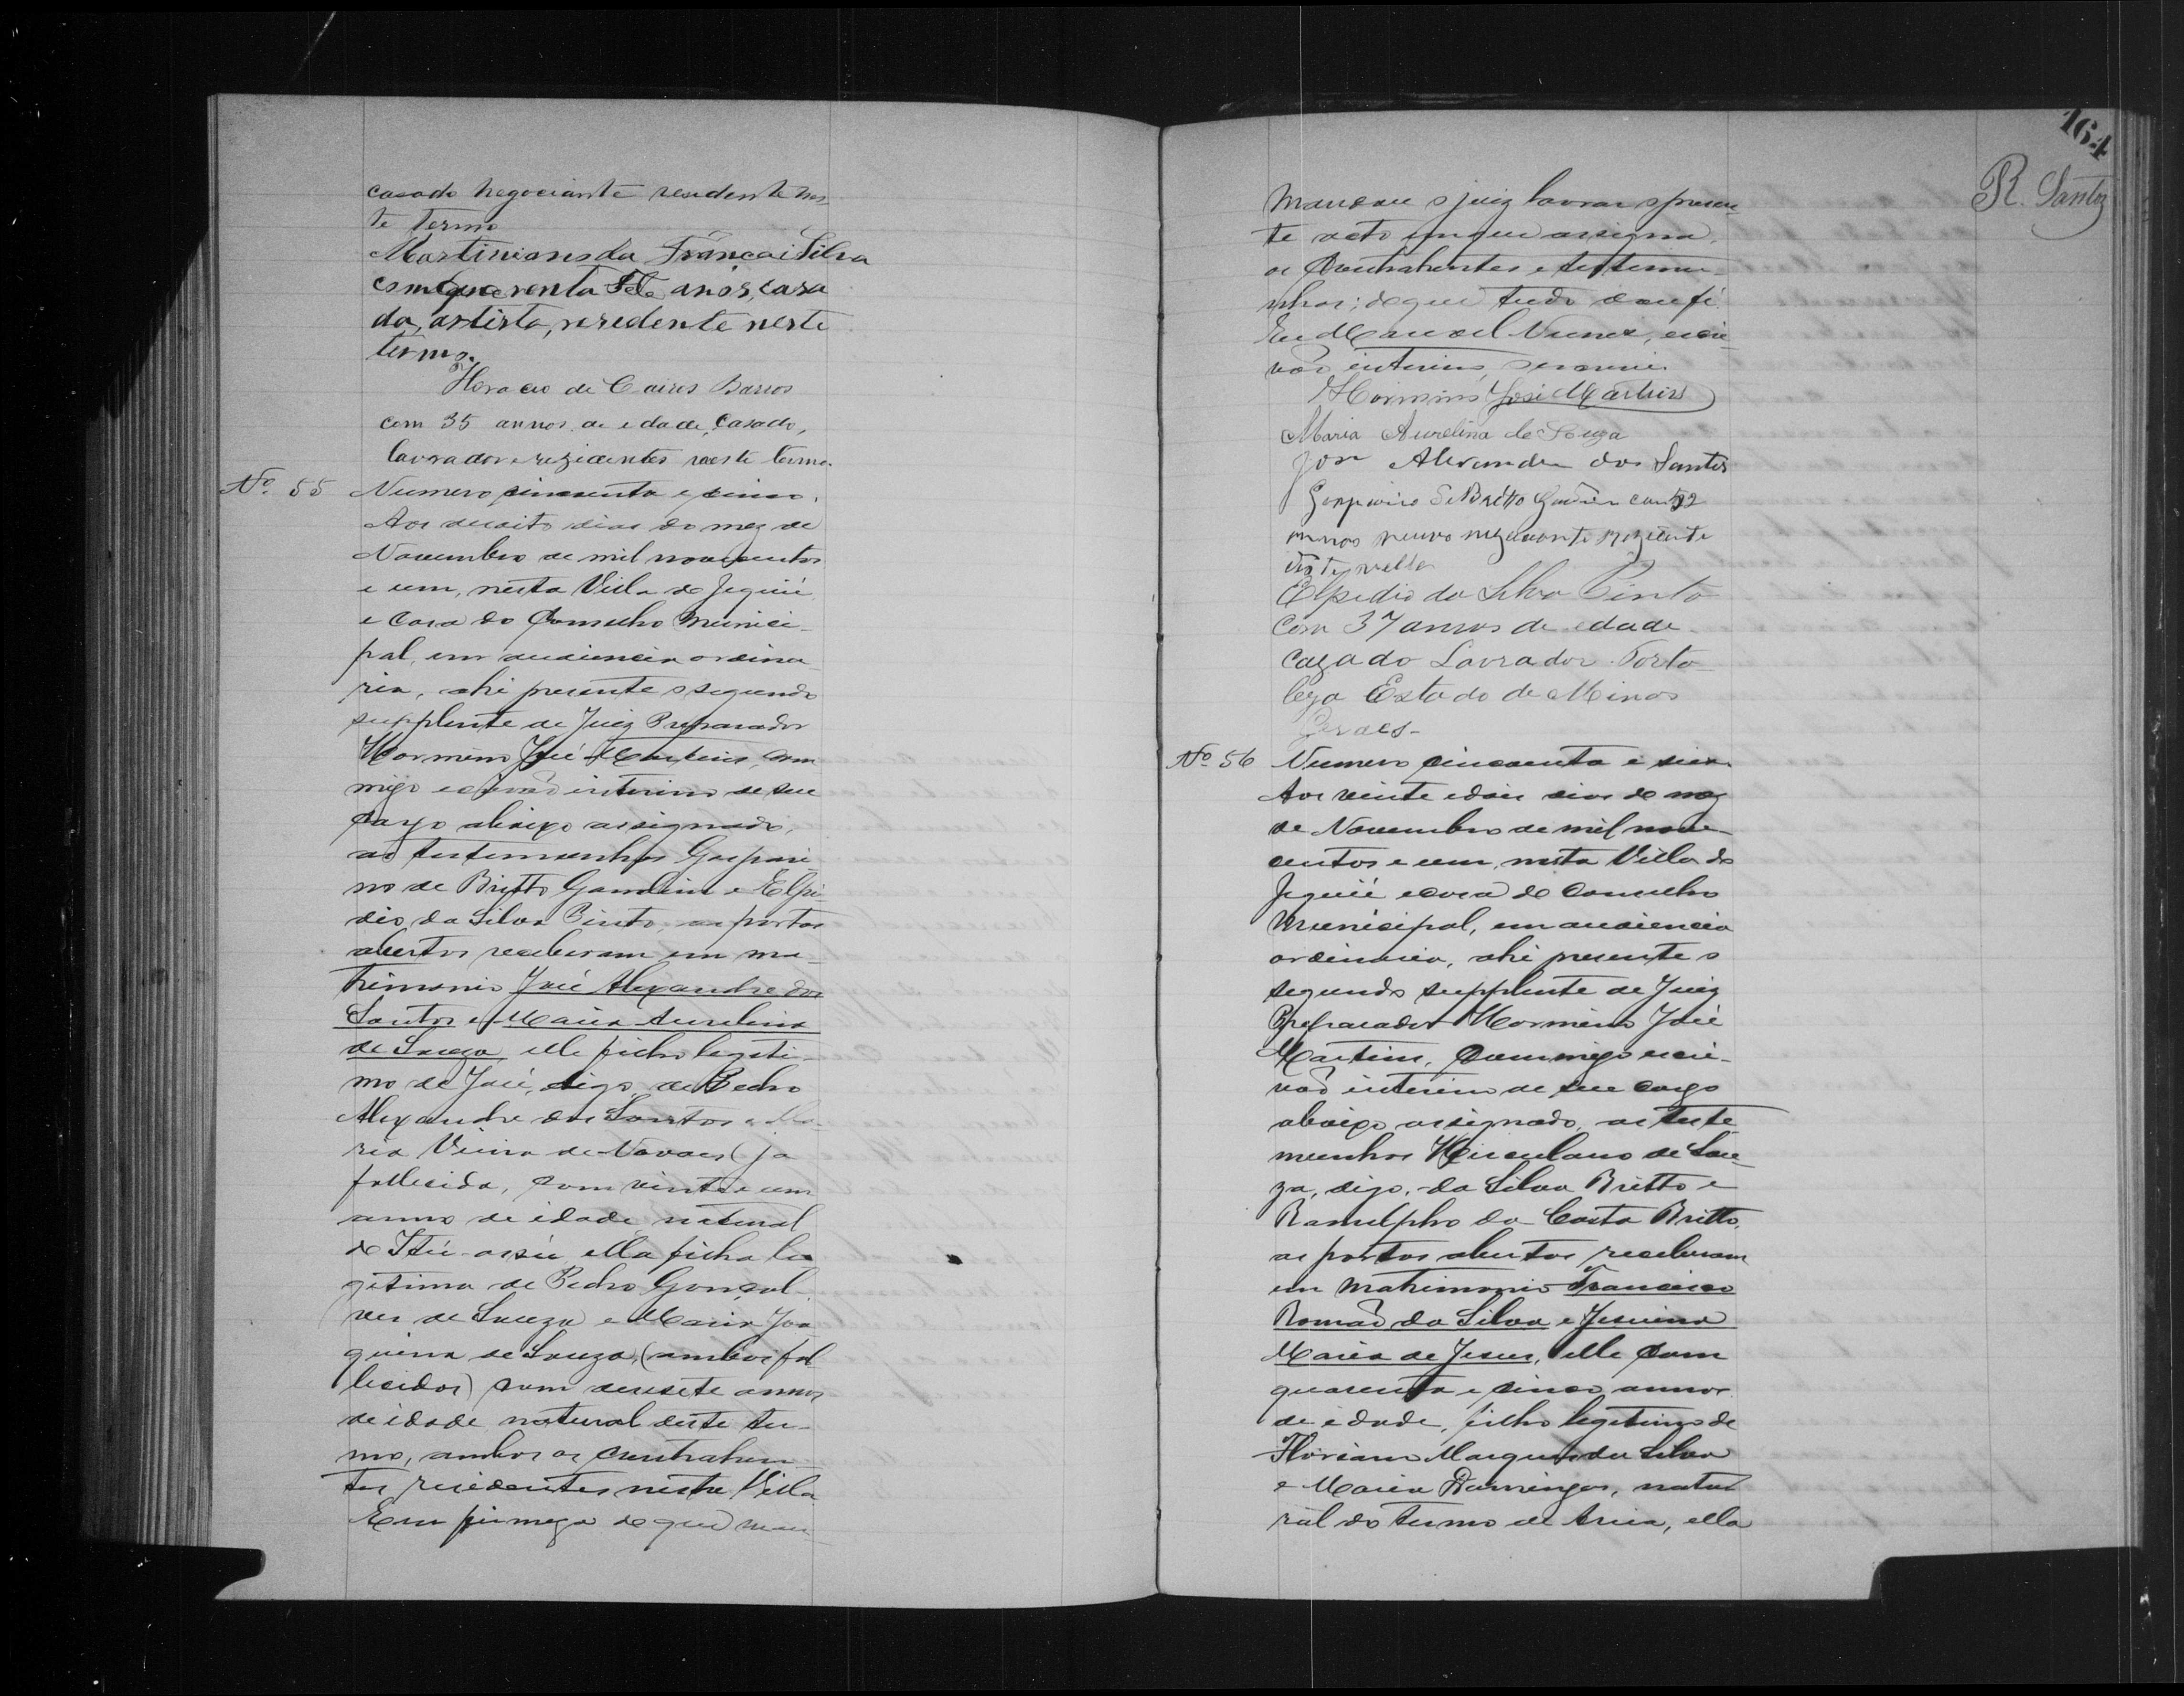 casado negociante residente nes-
te termo
Martiniano da França i Silva
com quarenta Sete anos, casa
do, artista, residente neste
termo.
Horacio de Caires Barros
com 35 annos de edade, casado,
lavrador e rezidentes neste termo.
Nº 55 Numero cincoenta e cinco.
Aos desoito dias do mez de
Novembro de mil novecentos
e um, nesta Villa de Jequié
e casa do Conselho Munici-
pal, em audiencia ordina
ria, ahi presente o segundo
supplente de Juiz Preparador
Hormino José Martins, com
migo escrivão interino de seu
cargo abaixo assignado,
as testemunhas Gaspari
no de Britto Gondim e Elpi-
dio da Silva Pinto, as portas
abertas receberam em ma-
trimonio José Alexandre dos
Santos e Maria Aurelina
de Souza, elle filho legiti-
mo de José, digo, de Pedro
Alexandre dos Santos e Ma-
ria Vieira de Novaes (ja
fallecida, com vinte e um
anno de idade natural
de ella filha le
gitima de Pedro Gonçal-
ves de Souza e Maria Joa
quina de Souza, (ambos fal
lecidos) com desesete annos
de idade natural deste ter-
mo, ambos os contrahen
tes residentes nesta Villa
Em firmeza do que man-
164
R. Santos
mandou o juiz lavrar o presen
te acto em que assigna,
os Contrahentes e testemu-
nhas; do que tudo dou fé.
Eu Manoel Nunes, escri-
vão interino, escrevi
Hormino José Martins
Maria Aurelina de Souza
José Alexandre dos Santos
Gasparino de Britto Gondim com 32
annos negociante rezidente
nesta villa
Elpidio da Silva Pinto
Com 37 annos de edade
Cazado Lavrador. Forta-
leza Estado de Minas
Geraes-
Nº 56 Numero cincoenta e seis
Aos vinte e dois dias do mez
de Novembro de mil nove-
centos e um, nesta Villa de
Jequié e casa do Conselho
Municipal, em audiencia
ordinaria, ahi presente o
segundo supplente de Juiz
Preparador Hormino José
Martins, Commigo escri-
vão interino de seu cargo
abaixo assignado, as teste
munhas Herculano de Sou
za, digo, da Silva Britto e
Ranulpho da Costa Britto,
as portas abertas receberam
em matrimonio Francisco
Romão da Silva e Jesuina
Maria de Jesus, elle com
quarenta e cinco annos
de idade, filho legitimo de
Floriano Marques da Silva
e Maria Domingas, natu
ral do termo de Areia, ella